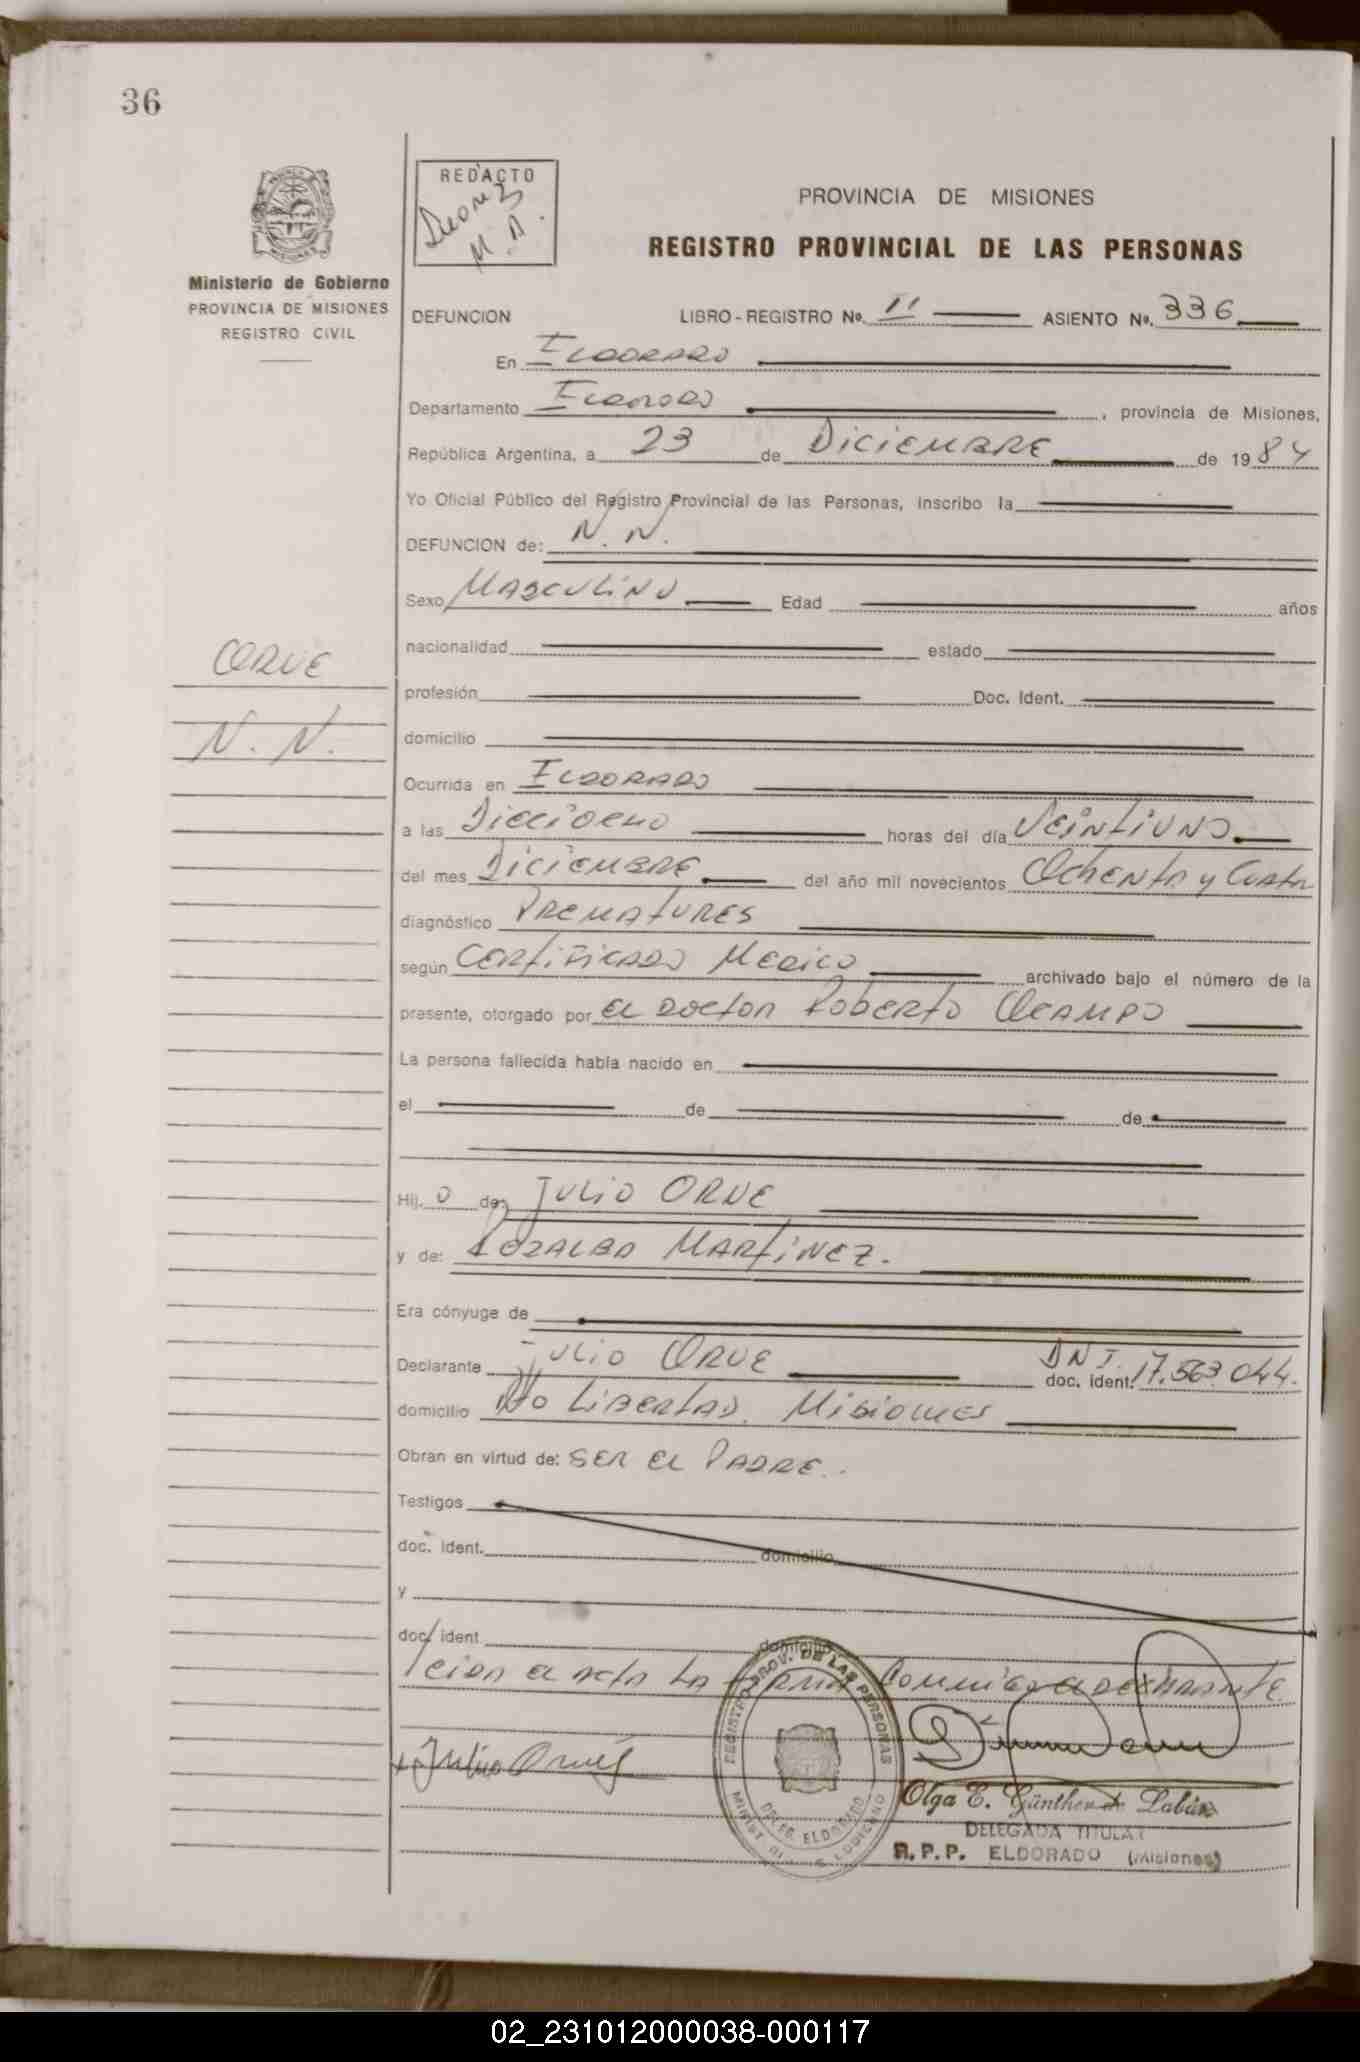 36
REDACTO
M. A.
PROVINCIA DE MISIONES
REGISTRO PROVINCIAL DE LAS PERSONAS
Ministerio de Gobierno
PROVINCIA DE MISIONES
REGISTRO CIVIL
DEFUNCION LIBRO-REGISTRO Nº. II ASIENTO Nº. 336
En ELDORADO
Departamento ELDORADO, provincia de Misiones,
República Argentina, a 23 de DICIEMBRE de 1984
Yo Oficial Público del Registro Provincial de las Personas, inscribo la
DEFUNCION de: N. N.
Sexo MASCULINO Edad años
nacionalidad estado
ORUE
profesión Doc. Ident.
N. N.
domicilio
Ocurrida en ELDORADO
a las DIECIOCHO horas del día VEINTIUNO
del mes DICIEMBRE del año mil novecientos OCHENTA y CUATRO
diagnóstico PREMATURES
según CERTIFICADO MEDICO archivado bajo el número de la
presente, otorgado por EL DOCTOR ROBERTO OCAMPO
La persona fallecida había nacido en
el de de
Hij. O de: JULIO ORUE
y de: ROZALBA MARTINEZ.
Era cónyuge de
Declarante JULIO ORUE doc. ident. DNI. 17.563.044.
domicilio Pto LIBERTAD. MISIONES
Obran en virtud de: SER EL PADRE.
Testigos
doc. ident. domicilio
y
doc. ident domicilio
LEIDA EL ACTA LA FIRMA CONMIGO EL DECLARANTE
REGISTRO PROV. DE LAS PERSONAS
DELEG. ELDORADO
Julio Orué
Olga E. Günther de Labür
DELEGADA TITULAR
R.P.P. ELDORADO (Misiones)
02_231012000038-000117